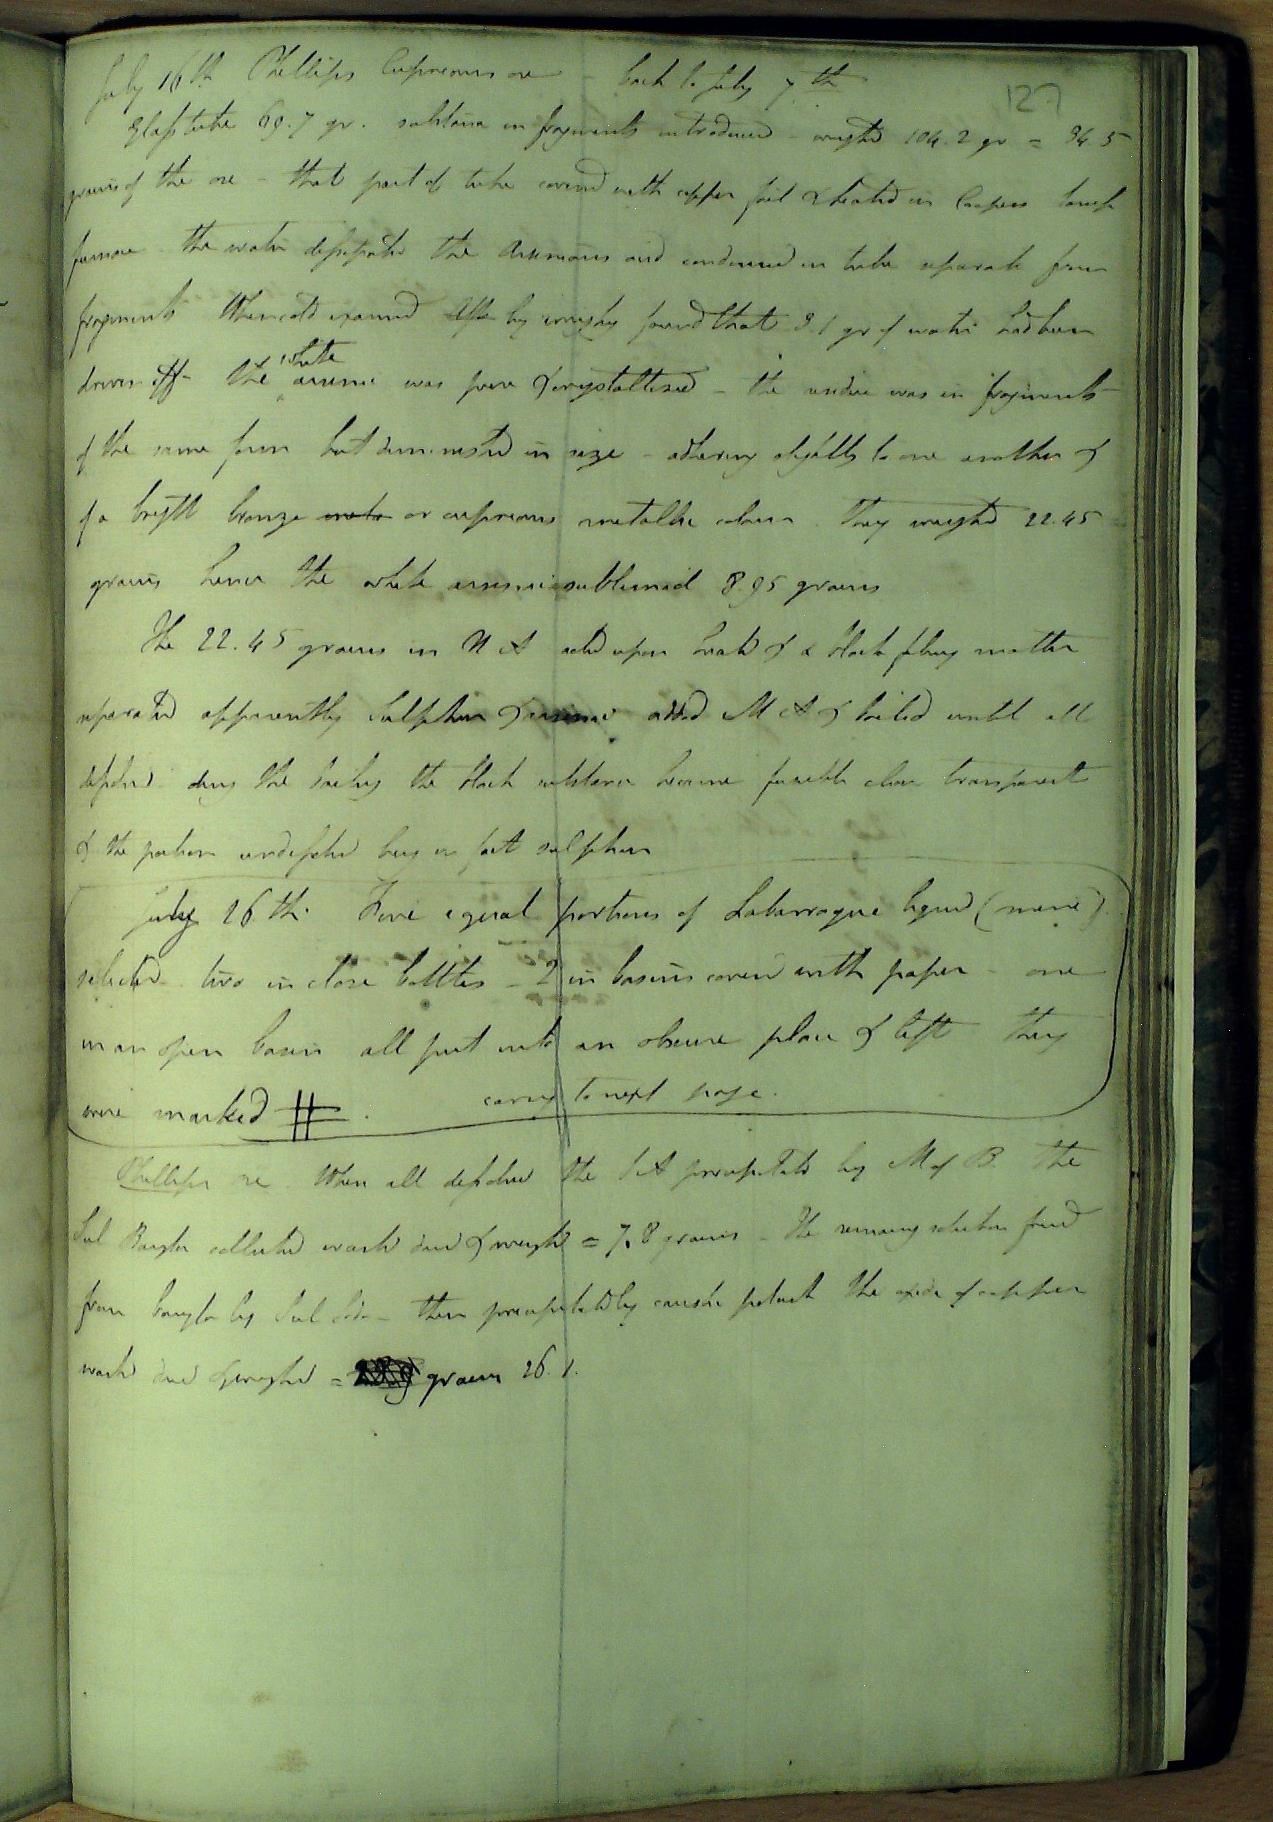 127
July 16th Phillips Cupreous ore - back to July 7th
Glass tube 69.7 gr. substance in fragments introduced - weighed 104.2 gr = 34.5
grains of the ore - that part of tube covered with copper foil & heated in Coopers lamp
furnace the water dissipated the Arsenious acid condensed in tube separate from
fragments When cold examined by weighing found that 3.1 gr of water had been
driven off - the white arsenic was pure & crystallised - the residue was in fragments
of the same form but diminished in size - adhering slightly to one another &
of a bright bronze or cupreous metallic colour. they weighed 22.45
grains hence the white arsenic sublimed 8.95 grains
The 22.45 grains in N A acted upon heated & a black flocky matter
separated apparently Sulphur & arsenic added M A & boiled until all
dissolved. during the boiling the black substance became fusible clear transparent
& the portion undissolved being in fact sulphur
July 26th. Five equal portions of Labarraque liquid (mine)
selected two in close bottles - 2 in basins covered with paper - one
in an open basin all put into an obscure place & left they
were marked # . carry to next page.
Phillips ore. When all dissolved the S A precipitated by M of B. the
Sul Baryta collected washed dried & weighed = 7.8 grains - The remaining solution freed
from baryta by Sul Soda - then precipitated by caustic potash the oxide of copper
washed dried & weighed = grains 26.1.